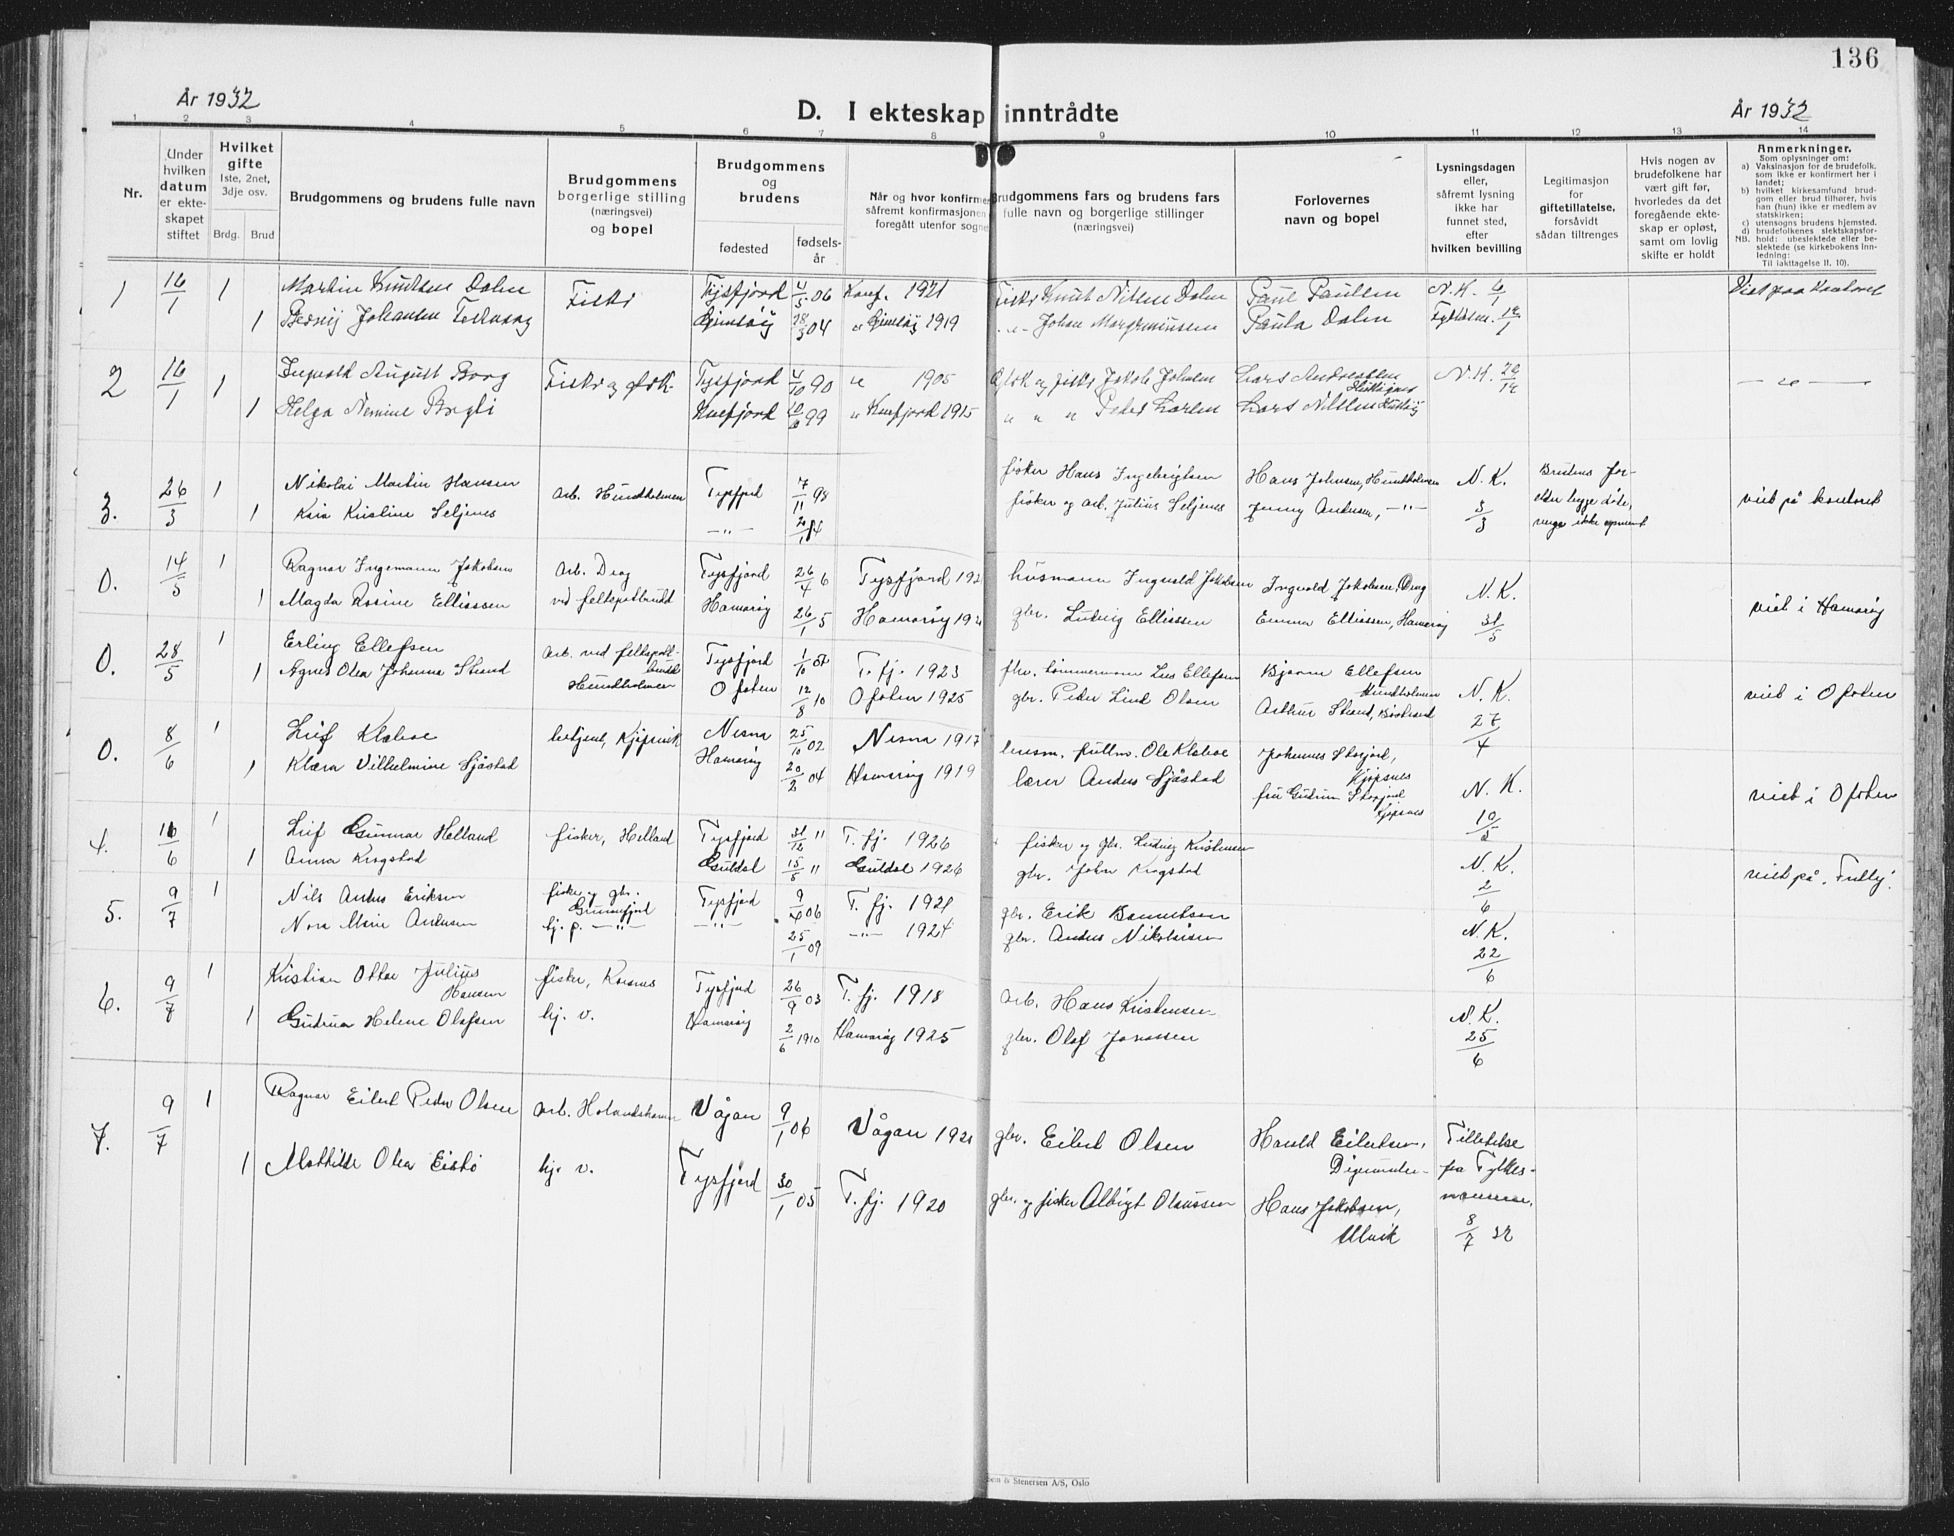 136
År 1932
D. I ekteskap inntrådte
År 1932
1 2 3 4 5 6 7 8 9 10 11 12 13 14
Nr.
Under hvilken datum er ekteskapet stiftet
Hvilket gifte
1ste, 2net, 3dje osv.
Brdg. Brud
Brudgommens og brudens fulle navn
Brudgommens borgerlige stilling (næringsvei) og bopel
Brudgommens og brudens
fødested
fødselsår
Når og hvor konfirme
såfremt konfirmasjonen
foregått utenfor sogne
Brudgommens fars og brudens fars
fulle navn og borgerlige stillinger
(næringsvei)
Forlovernes
navn og bopel
Lysningsdagen
eller,
såfremt lysning
ikke har
funnet sted,
efter
hvilken bevilling
Legitimasjon
for
giftetillatelse,
forsåvidt
sådan tiltrenges
Hvis nogen av
brudefolkene har
vært gift før,
hvorledes da det
foregående ekte-
skap er opløst,
samt om lovlig
skifte er holdt
Anmerkninger.
Som oplysninger om:
a) Vaksinasjon for de brudefolk, som ikke er konfirmert her i landet;
b) hvilket kirkesamfund brudgom eller brud tilhører, hvis han (hun) ikke er medlem av statskirken;
c) utensogns brudens hjemsted.
d) brudefolkenes slektskapsforhold: ubeslektede eller beslektede (se kirkebokens Innledning:
NB. Til iakttagelse II. 10).
1 16/1 1 Martin Knutsen Dalen Fisker Tysfjord 4/5 06 Konf. 1921 Fisker Knut Nilsen Dalen Paul Paulsen N.K. 6/1 Viet paa Kontoret
1 Gimsøy 18/3 04 " Gimsøy 1919 " Johan Paula Dalen
2 16/1 1 August Borg Fisker og Tysfjord 4/10 90 " 1905 og fisker Jakob Johnsen Lars Andreassen N.K. 20/12 — " —
1 Helga Nemine Kvæfjord 10/6 99 " Kvæfjord 1915 " " " Peder Larsen Lars Nilsen
3. 26/3 1 Nikolai Martin Hansen arb. Hundholmen Tysfjord 7/11 98 fisker Hans Ingebrigtsen Hans Johnsen, Hundholmen N.K. 3/3 Brudens for- viet på kontoret
1 Kaia Kristine Seljenes —"— fisker og arb. Julius Seljenes Jenny Andersen, —"— eldre begge døde, verge ikke opnevnt
0. 14/5 1 Ragnar Ingemann Jakobsen arb. Drag Tysfjord 26/4 6 Tysfjord 192 husmann Ingvald Jakobsen Ingvald Jakobsen, Drag N.K. 31/5 viet i Hamarøy
1 Magda Rosine Elliassen ved feltspatbrudd Hamarøy 26/1 5 Hamarøy 192 gbr. Ludvig Elliassen Emma Elliassen, Hamarøy
0. 28/5 1 Erling Ellefsen arb. ved feltspatbrudd Tysfjord T.fj. 1923 fhv. tømmermann Ellefsen Bjarne Ellefsen Hundholmen N.K. 27/4 viet i Ofoten
1 Agnes Olea Johanna Strand Hundholmen Ofoten 12/8 10 Ofoten 1925 gbr. Peder Lind Olsen Arthur Strand,
0. 8/6 1 Leif Klæboe betjent, Kjøpsvik Nesna 25/10 02 Nesna 1917 lensm. fullm. Ole Klæboe Johannes Storjord, Kjøpsnes N.K. 10/5 viet i Ofoten
1 Klara Vilhelmine Sjåstad Hamarøy 20/2 04 Hamarøy 1919 lærer Anders Sjåstad fru Gudrun Storjord Kjøpsnes
4. 16/6 1 Leif Gunnar Helland fisker, Helland Tysfjord 31/12 11 T.fj. 1926 fisker og gbr. Ludvig Kristensen N.K. 2/6 viet på "Fully".
1 Anna Krogstad Guldal 15/5 11 Guldal 1926 gbr. John Krogstad
5. 9/7 1 Nils Anders Eriksen fisker og gbr. Tysfjord 9/4 06 T.fj. 1921 gbr. Erik N.K. 22/6
Nora Marie Andersen hj. p. —"— —"— 25/1 09 —"— 1924 gbr. Anders Nikolaisen
6. 9/7 1 Kristian Ottar Julius Hansen fisker, Korsnes Tysfjord 26/9 03 T.fj. 1918 arb. Hans Kristensen N.K. 25/6
1 Gudrun Helene Olafsen hj. v. Hamarøy 2/6 1910 Hamarøy 1925 gbr. Olaf Jonassen
7. 9/7 1 Ragnar Eilert Peder Olsen arb. Vågan 9/1 06 Vågan 1921 gbr. Eilert Olsen Harald Eilertsen, Digermulen Tillatelse fra Fylkesmannen, 8/7 32
1 Mathilde Olea hj. v. Tysfjord 30/1 05 T.fj. 1920 gbr. og fisker Albigt Olaussen Hans Jakobsen, Ulvik
& Stenersen A/S, Oslo